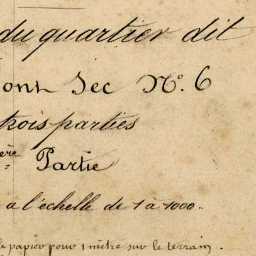 du quartier dit
ont Sec N.º 6
trois parties
ère Partie
a l'échelle de 1 à 1000.
papier pour 1 mètre sur le terrain.